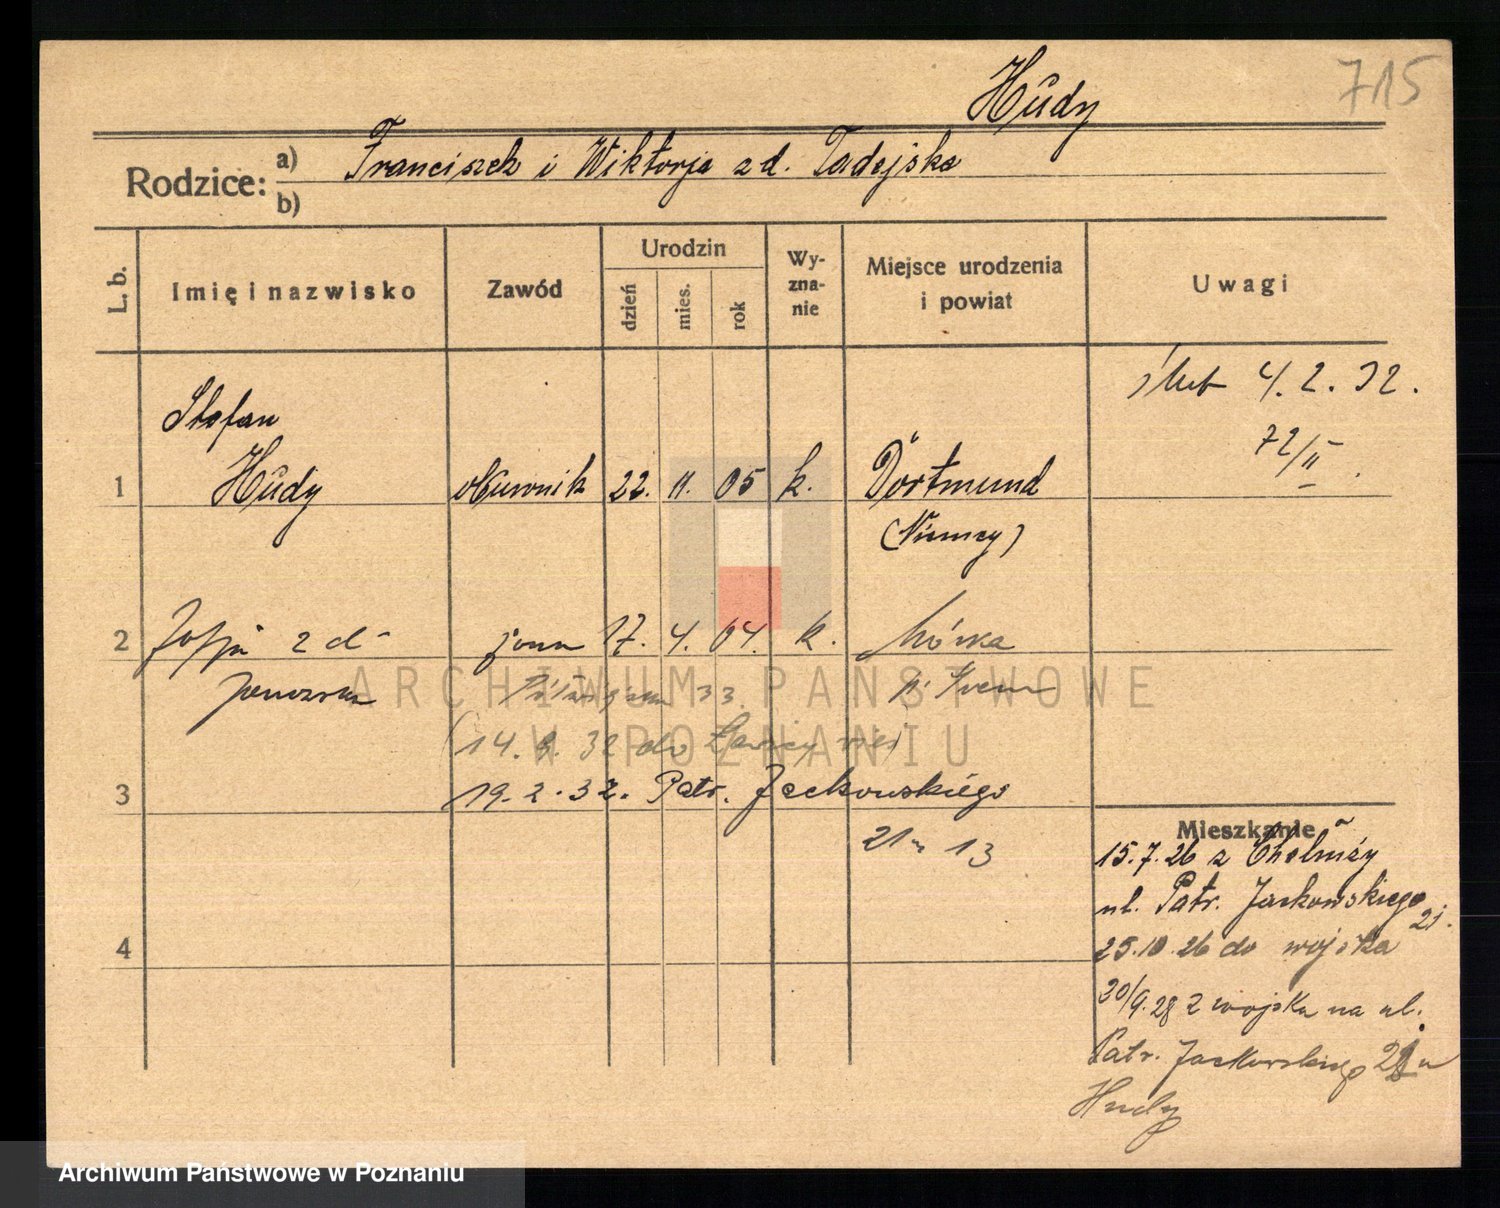 Hudy
715
Rodzice: a) Franciszek i Wiktorja zd. Tadejska
b)
L. b.
Imię i nazwisko
Zawód
Urodzin
dzień
mies.
rok
Wy-
zna-
nie
Miejsce urodzenia
i powiat
Uwagi
ślub 4. 2. 32.
72/II
Stefan
1 Hudy obuwnik 22. 11. 05 k. Dortmund
(Niemcy)
2 Zofja z d. żona 17. 4. 04. k. Mórka
p. Śrem
33.
14. 32 do
3 19. 2. 32. Patr. Jackowskiego
21 m 13
4
Mieszkanie
15.7.26 z Chełmży
ul. Patr. Jackowskiego 21.
25.10.26 do wojska
30/9.28 z wojska na ul.
Patr. Jackowskiego
Hudy
ARCHIWUM PAŃSTWOWE
W POZNANIU
Archiwum Państwowe w Poznaniu